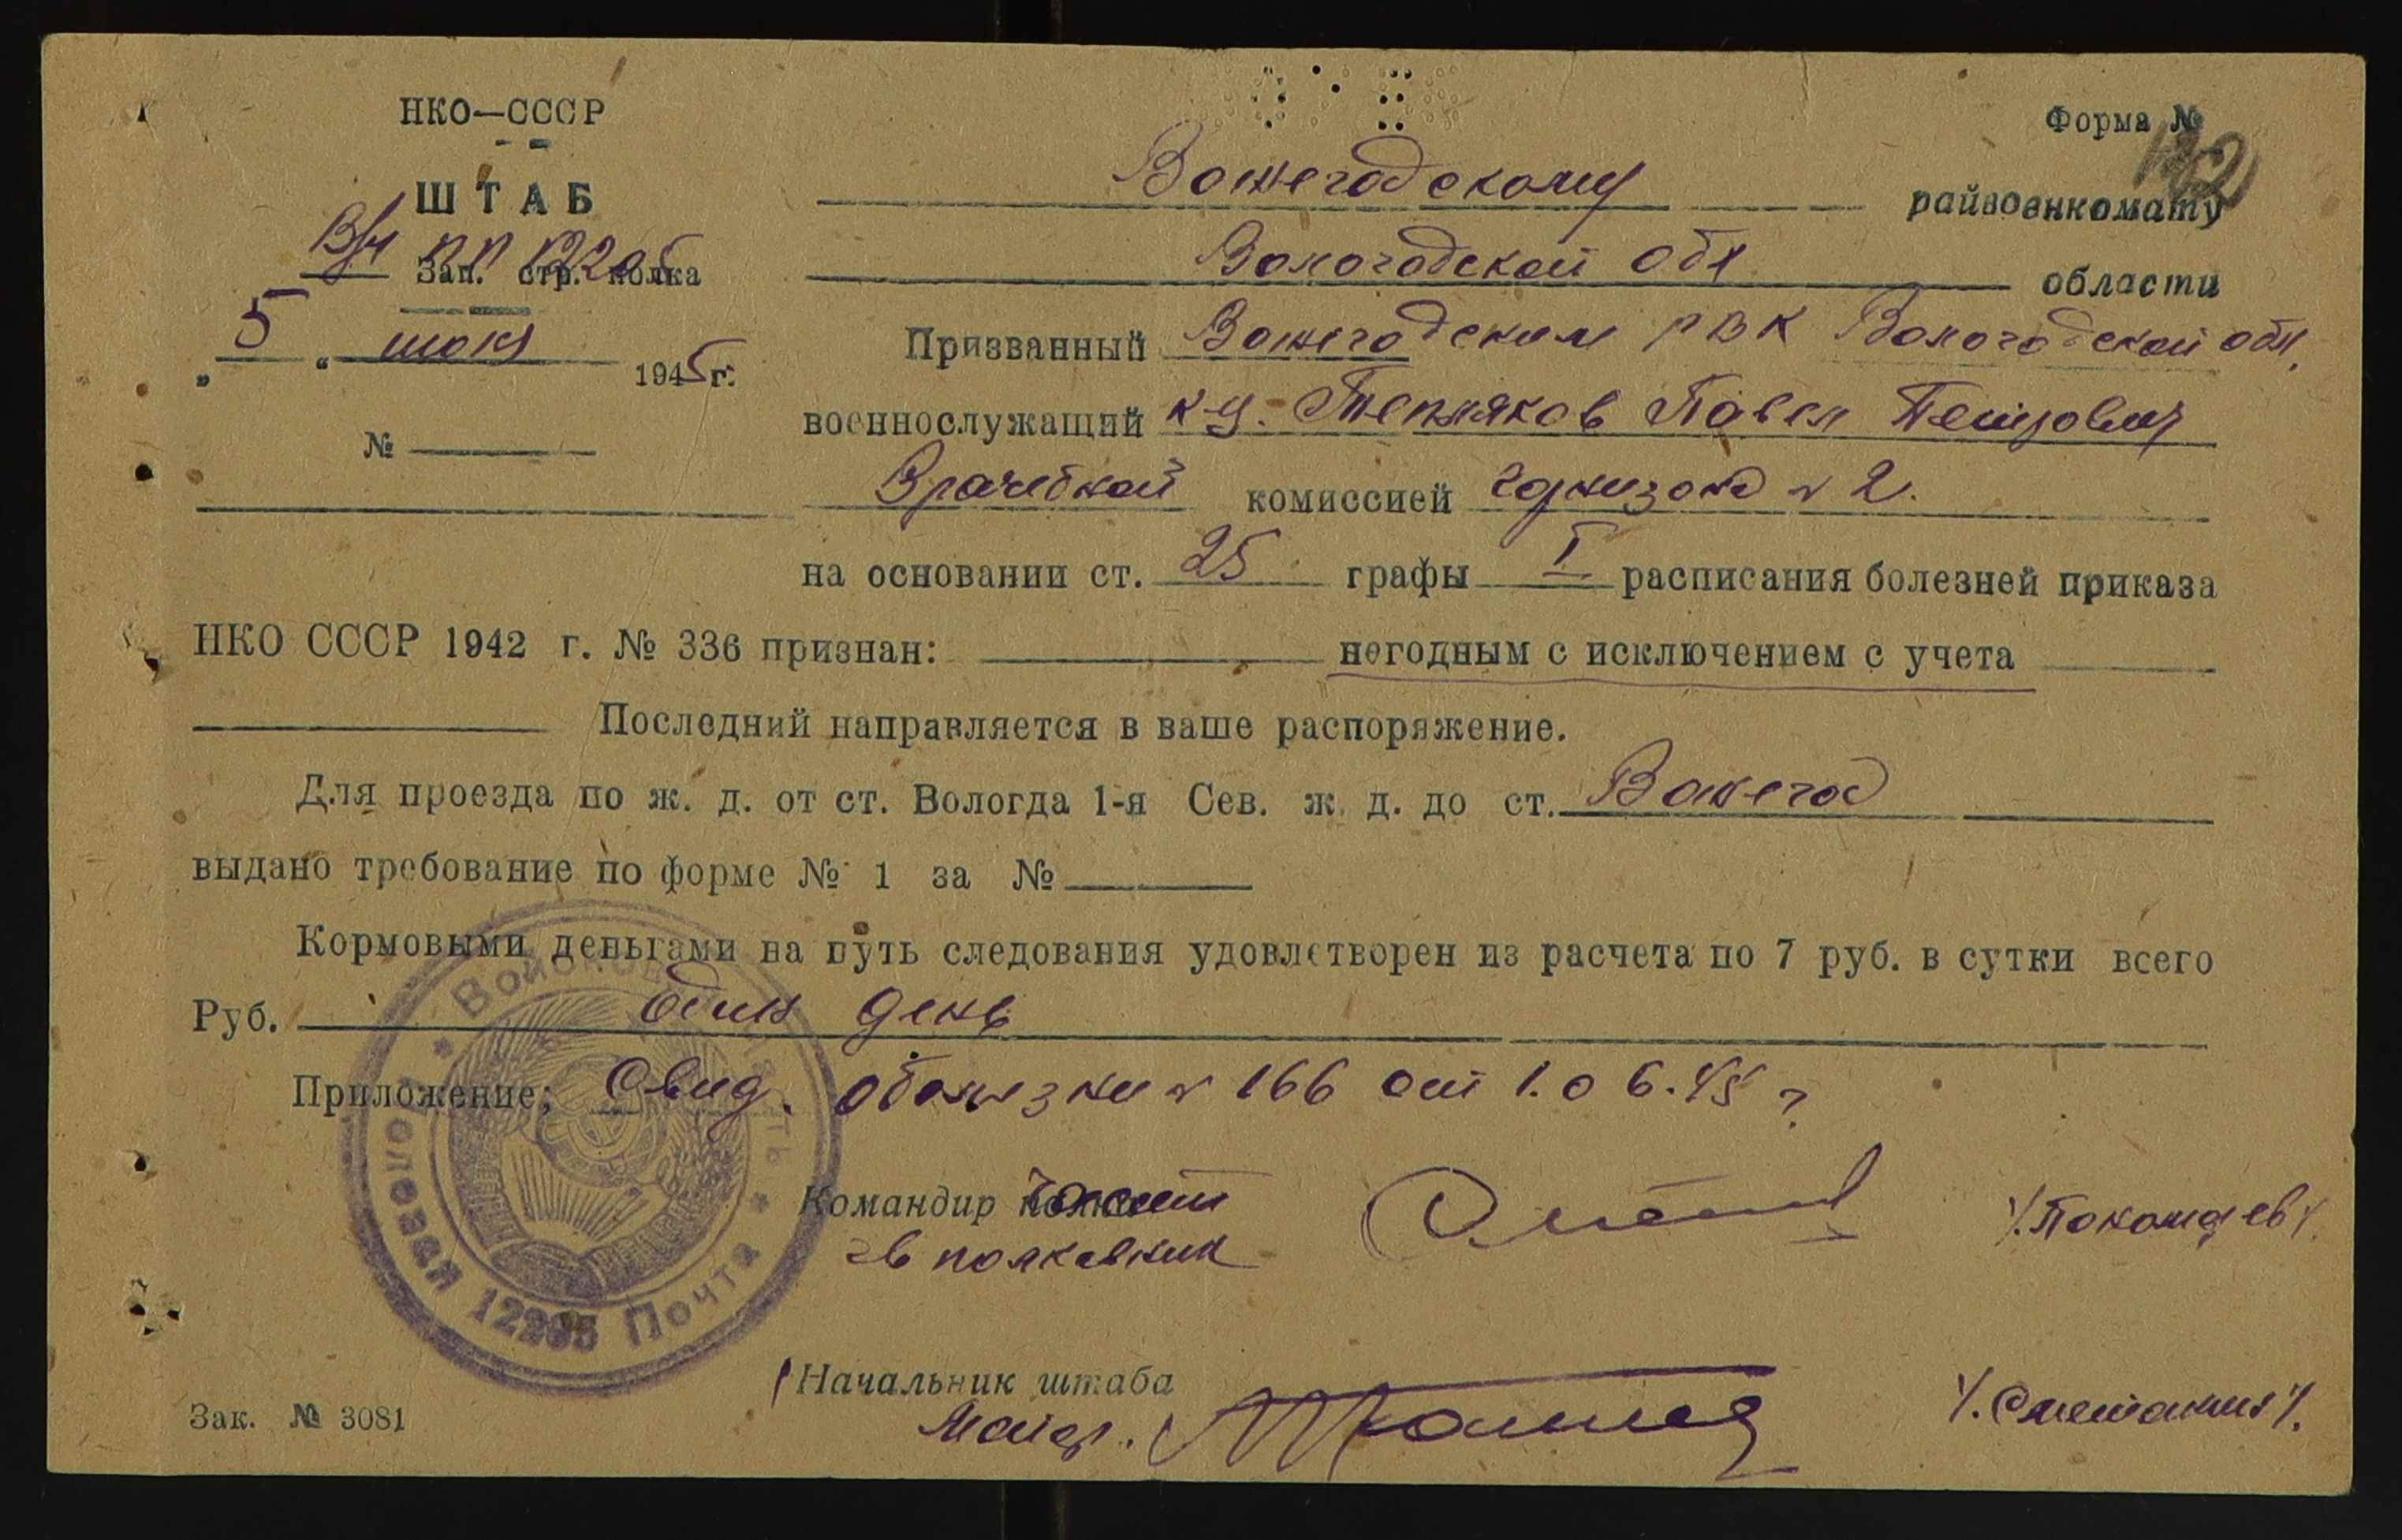 НКО—СССР
ШТАБ
В/ч пп 12205
Зап. стр. полка
„ 5 “ июня 1945 г.
№
Форма №
Вожегодскому райвоенкомату
Вологодской обл области
Призванный Вожегодским РВК Вологодской обл.
военнослужащий к-ц. Тепляков Павел Петрович
Врачебной комиссией гарнизона № 2.
на основании ст. 25 графы I расписания болезней приказа
НКО СССР 1942 г. № 336 признан: негодным с исключением с учета
Последний направляется в ваше распоряжение.
Для проезда по ж. д. от ст. Вологда 1-я Сев. ж. д. до ст. Вожегод
выдано требование по форме № 1 за №
Кормовыми деньгами на путь следования удовлетворен из расчета по 7 руб. в сутки всего
Руб. один день
Приложение; Свид. о болезни № 166 от 1.06.45 г
Командир части
гв полковник
/.Покатаев/.
Войсковая часть
Полевая Почта
Начальник штаба
Майор.
/.Сметанин/.
Зак. № 3081